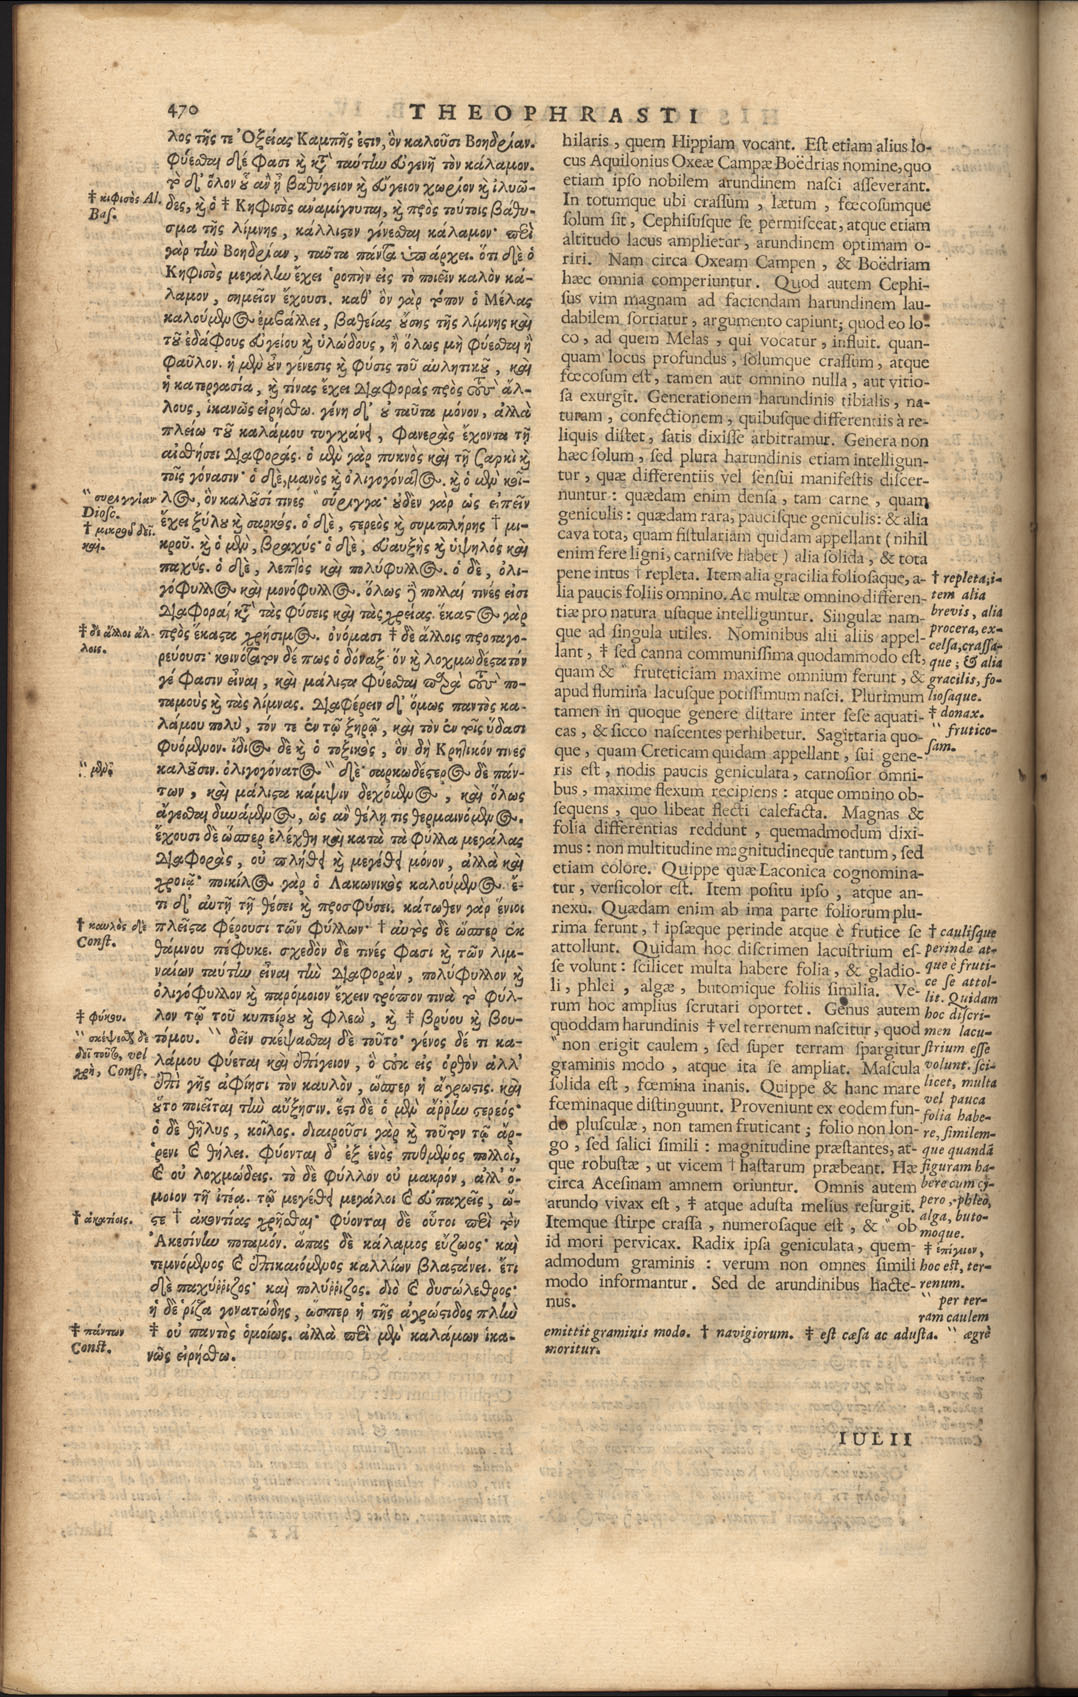 470
THEOPHRASTI
λος τῆς τε Ὀξείας Καμπῆς ἐστιν, ὃν καλοῦσι Βοηδρίαν.
φύεσθαι δέ φασι καὶ κατὰ ταύτην εὐγενῆ τὸν κάλαμον.
τὸ δ' ὅλον οὗ ἂν ᾖ βαθύγειον καὶ εὔγειον χωρίον καὶ ἰλυῶ-
δες, καὶ ὁ ‡ Κηφισὸς ἀναμίγνυται, καὶ πρὸς τούτοις βάθυ-
σμα τῆς λίμνης, κάλλιστον γίνεσθαι κάλαμον· περὶ
γὰρ τὴν Βοηδρίαν, ταῦτα πάντα ὑπάρχει. ὅτι δὲ ὁ
Κηφισὸς μεγάλην ἔχει ῥοπὴν εἰς τὸ ποιεῖν καλὸν κά-
λαμον, σημεῖον ἔχουσι. καθ' ὃν γὰρ τόπον ὁ Μέλας
καλούμενος ἐμβάλλει, βαθείας οὔσης τῆς λίμνης καὶ
τοῦ ἐδάφους εὐγείου καὶ ὑλώδους, ἢ ὅλως μὴ φύεσθαι ἢ
φαῦλον. ἡ μὲν οὖν γένεσις καὶ φύσις τοῦ αὐλητικοῦ, καὶ
ἡ κατεργασία, καὶ τίνας ἔχει διαφορὰς πρὸς τοὺς ἄλ-
λους, ἱκανῶς εἰρήσθω. γένη δ' οὐ ταῦτα μόνον, ἀλλὰ
πλείω τοῦ καλάμου τυγχάνει, φανερὰς ἔχοντα τῇ
αἰσθήσει διαφοράς. ὁ μὲν γὰρ πυκνὸς καὶ τῇ σαρκὶ καὶ
τοῖς γόνασιν· ὁ δὲ, μανὸς καὶ ὀλιγογόνατος. καὶ ὁ μὲν κοῖ-
λος, ὃν καλοῦσί τινες " σύριγγα· οὐδὲν γὰρ ὡς εἰπεῖν
ἔχει ξύλου καὶ σαρκός. ὁ δὲ, στερεὸς καὶ συμπλήρης † μι-
κροῦ. καὶ ὁ μὲν, βραχύς· ὁ δὲ, εὐαυξὴς καὶ ὑψηλὸς καὶ
παχύς. ὁ δὲ, λεπτὸς καὶ πολύφυλλος. ὁ δὲ, ὀλι-
γόφυλλος καὶ μονόφυλλος. ὅλως δὲ πολλαί τινές εἰσι
διαφοραὶ κατὰ τὰς φύσεις καὶ τὰς χρείας. ἕκαστος γὰρ
πρὸς ἕκαστα χρήσιμος. ὀνόμασι ‡ δὲ ἄλλοις προσαγο-
ρεύουσι· κοινότατον δέ πως ὁ δόναξ· ὃν καὶ λοχμωδέστατόν
γέ φασιν εἶναι, καὶ μάλιστα φύεσθαι παρὰ τοὺς πο-
ταμοὺς καὶ τὰς λίμνας. διαφέρειν δ' ὅμως παντὸς κα-
λάμου πολύ, τόν τε ἐν τῷ ξηρῷ, καὶ τὸν ἐν τοῖς ὕδασι
φυόμενον. ἴδιος δὲ καὶ ὁ τοξικός, ὃν δὴ Κρητικόν τινες
καλοῦσιν. ὀλιγογόνατος " δὲ· σαρκωδέστερος δὲ πάν-
των, καὶ μάλιστα κάμψιν δεχόμενος, καὶ ὅλως
ἄγεσθαι δυνάμενος, ὡς ἂν θέλῃ τις θερμαινόμενος.
ἔχουσι δὲ ὥσπερ ἐλέχθη καὶ κατὰ τὰ φύλλα μεγάλας
διαφορὰς, οὐ πλήθει καὶ μεγέθει μόνον, ἀλλὰ καὶ
χροιᾷ· ποικίλος γὰρ ὁ Λακωνικὸς καλούμενος. ἔ-
τι δ' αὐτῇ τῇ θέσει καὶ προσφύσει. κάτωθεν γὰρ ἔνιοι
πλεῖστα φέρουσι τῶν φύλλων· † αὐτὸς δὲ ὥσπερ ἐκ
θάμνου πέφυκε. σχεδὸν δέ τινές φασι καὶ τῶν λιμ-
ναίων ταύτην εἶναι τὴν διαφορὰν, πολύφυλλον καὶ
ὀλιγόφυλλον καὶ παρόμοιον ἔχειν τρόπον τινὰ τὸ φύλ-
λον τῷ τοῦ κυπείρου καὶ φλεῶ, καὶ ‡ βρύου καὶ βου-
τόμου. " δεῖν σκέψασθαι δὲ τοῦτο· γένος δέ τι κα-
λάμου φύεται καὶ ἐπίγειον, ὃ οὐκ εἰς ὀρθὸν ἀλλ'
ἐπὶ γῆς ἀφίησι τὸν καυλὸν, ὥσπερ ἡ ἄγρωστις. καὶ
οὕτο ποιεῖται τὴν αὔξησιν. ἔστι δὲ ὁ μὲν ἄῤῥην στερεός·
ὁ δὲ θῆλυς, κοῖλος. διαιροῦσι γὰρ καὶ τοῦτον τῷ ἄῤ-
ρενι καὶ θήλει. φύονται δ' ἐξ ἑνὸς πυθμένος πολλοὶ,
καὶ οὐ λοχμώδεις. τὸ δὲ φύλλον οὐ μακρόν, ἀλλ' ὅ-
μοιον τῇ ἰτέᾳ. τῷ μεγέθει μεγάλοι καὶ εὐπαχεῖς, ὥ-
στε † ἀκοντίας χρῆσθαι· φύονται δὲ οὗτοι περὶ τὸν
Ἀκεσίνην ποταμόν. ἅπας δὲ κάλαμος εὔζωος· καὶ
τεμνόμενος καὶ ἐπικαιόμενος καλλίων βλαστάνει. ἔτι
δὲ παχύῤῥιζος· καὶ πολύῤῥιζος. διὸ καὶ δυσώλεθρος·
ἡ δὲ ῥίζα γονατώδης, ὥσπερ ἡ τῆς ἀγρώστιδος πλὴν
‡ οὐ παντὸς ὁμοίως. ἀλλὰ περὶ μὲν καλάμων ἱκα-
νῶς εἰρήσθω.
‡ κιφισὸς Al.
Bas.
" συριγγίαν
Diosc.
† μικροῦ δεῖ.
καί.
‡ δὲ ἄλλοι ἄλ-
λοις.
" μὲν
† καυλὸς δὲ
Const.
‡ φύκου.
" σκέψασθαι δὲ
δεῖ τοῦτο, vel
χρὴ, Const.
† ἀκοντίοις.
‡ πάντων
Const.
hilaris, quem Hippiam vocant. Est etiam alius lo-
cus Aquilonius Oxeæ Campæ Boëdrias nomine, quo
etiam ipso nobilem arundinem nasci asseverant.
In totumque ubi crassum, lætum, fœcosumque
solum sit, Cephisusque se permisceat, atque etiam
altitudo lacus amplietur, arundinem optimam o-
riri. Nam circa Oxeam Campen, & Boëdriam
hæc omnia comperiuntur. Quod autem Cephi-
sus vim magnam ad faciendam harundinem lau-
dabilem sortiatur, argumento capiunt; quod eo lo-
co, ad quem Melas, qui vocatur, influit. quan-
quam locus profundus, solumque crassum, atque
fœcosum est, tamen aut omnino nulla, aut vitio-
sa exurgit. Generationem harundinis tibialis, na-
turam, confectionem, quibusque differentiis à re-
liquis distet, satis dixisse arbitramur. Genera non
hæc solum, sed plura harundinis etiam intelligun-
tur, quæ differentiis vel sensui manifestis discer-
nuntur: quædam enim densa, tam carne, quam
geniculis: quædam rara, paucisque geniculis: & alia
cava tota, quam fistulariam quidam appellant (nihil
enim fere ligni, carnisve habet) alia solida, & tota
pene intus † repleta. Item alia gracilia foliosaque, a-
lia paucis foliis omnino. Ac multæ omnino differen-
tiæ pro natura usuque intelliguntur. Singulæ nam-
que ad singula utiles. Nominibus alii aliis appel-
lant, ‡ sed canna communissima quodammodo est,
quam & " fruteticiam maxime omnium ferunt, &
apud flumina lacusque potissimum nasci. Plurimum
tamen in quoque genere distare inter sese aquati-
cas, & sicco nascentes perhibetur. Sagittaria quo-
que, quam Creticam quidam appellant, sui gene-
ris est, nodis paucis geniculata, carnosior omni-
bus, maxime flexum recipiens: atque omnino ob-
sequens, quo libeat flecti calefacta. Magnas &
folia differentias reddunt, quemadmodum dixi-
mus: non multitudine magnitudineque tantum, sed
etiam colore. Quippe quæ Laconica cognomina-
tur, versicolor est. Item positu ipso, atque an-
nexu. Quædam enim ab ima parte foliorum plu-
rima ferunt, † ipsæque perinde atque è frutice se
attollunt. Quidam hoc discrimen lacustrium es-
se volunt: scilicet multa habere folia, & gladio-
li, phlei, algæ, butomique foliis similia. Ve-
rum hoc amplius scrutari oportet. Genus autem
quoddam harundinis ‡ vel terrenum nascitur, quod
" non erigit caulem, sed super terram spargitur
graminis modo, atque ita se ampliat. Mascula
solida est, fœmina inanis. Quippe & hanc mare
fœminaque distinguunt. Proveniunt ex eodem fun-
do plusculæ, non tamen fruticant; folio non lon-
go, sed salici simili: magnitudine præstantes, at-
que robustæ, ut vicem † hastarum præbeant. Hæ
circa Acesinam amnem oriuntur. Omnis autem
arundo vivax est, ‡ atque adusta melius resurgit.
Itemque stirpe crassa, numerosaque est, & " ob
id mori pervicax. Radix ipsa geniculata, quem-
admodum graminis: verum non omnes simili
modo informantur. Sed de arundinibus hacte-
nus.
† repleta; i-
tem alia
brevis, alia
procera, ex-
celsa, crassa-
que; & alia
gracilis, fo-
liosaque.
‡ donax.
" frutico-
sam.
† caulisque
perinde at-
que è fruti-
ce se attol-
lit. Quidam
hoc discri-
men lacu-
strium esse
volunt. sci-
licet, multa
vel pauca
folia habe-
re, similem-
que quandã
figuram ha-
bere cum cy-
pero, phleo,
alga, buto-
moque.
‡ ἐπίγειον,
hoc est, ter-
renum.
" per ter-
ram caulem
emittit graminis modo. † navigiorum. ‡ est cæsa ac adusta. " ægrè
moritur.
IULII